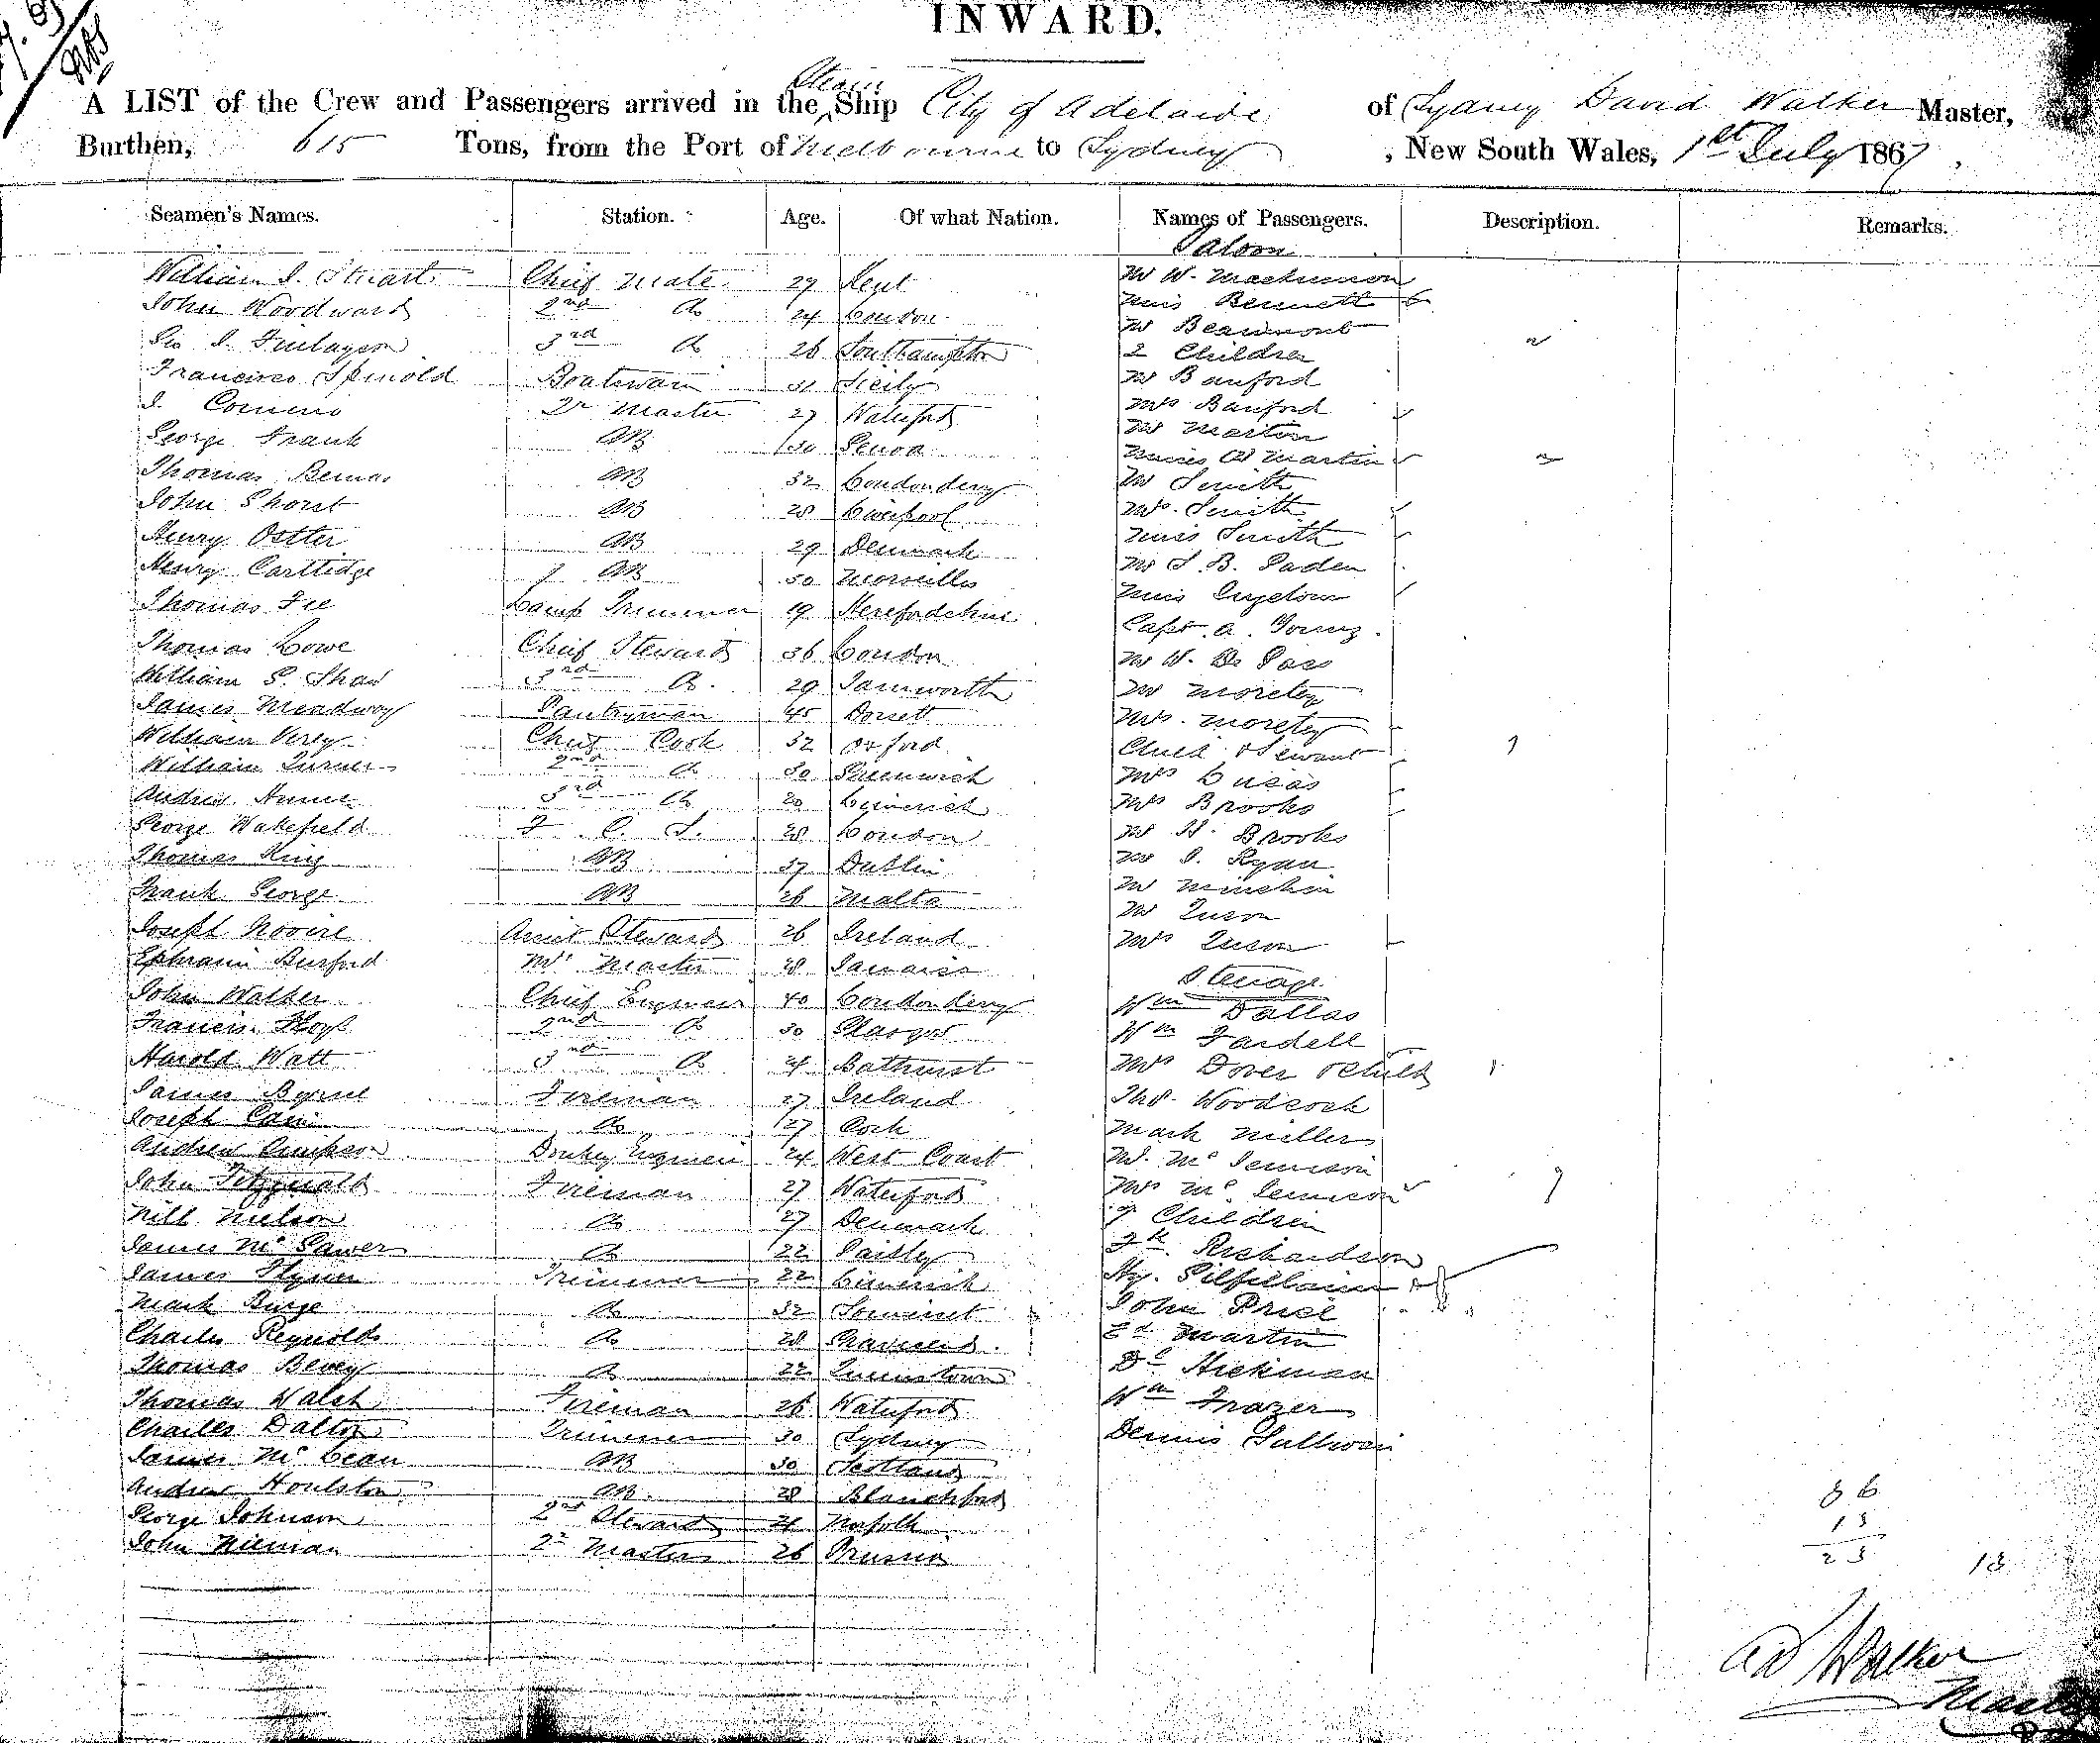 INWARD.
A LIST of the Crew and Passengers arrived in the Steam Ship City of Adelaide of Sydney David Walker Master,
Burthen, 615 Tons, from the Port of Melbourne to Sydney, New South Wales, 1st July 1867,
Seamen's Names. Station. Age. Of what Nation. Names of Passengers. Description. Remarks.
Saloon
William J. Stuart Chief Mate 29 Kent Mr W. Mackinnon
John Woodward 2nd Do 24 London Miss Bennett
3rd Do 26 Southampton Mr Beaumont
2 Children
Boatswain 31 Sicily Mr Banford
Qr Master 27 Waterford Mrs Banford
George Frank AB 30 Genoa Mr Martin
Thomas AB 32 Londonderry Misses Martin
John Short AB 28 Liverpool Mr Smith
Mrs Smith
Henry Ostter AB 29 Denmark Miss Smith
Henry Carttidge AB 30 Mr S. B.
Thomas Fee Lamp Trimmer 19 Herefordshire Miss
Thomas Lowe Chief Steward 36 London Capt. A. Young
William S. Shaw 3rd Do. 29 Tamworth Mr W. De Pass
James Meadway Pantryman 45 Dorsett Mr Morety
William Chief Cook 32 Oxford Mrs. Morety
William Turner 2nd Do 30 Greenwich Child & Servant
Andrew 3rd Do 20 Limerick Mrs Lucas
George Wakefield 28 London Mrs Brooks
Mr H. Brooks
Thomas King AB 37 Dublin Mr J. Ryan
Frank George AB 26 Malta Mr Minchin
Joseph Steward 26 Ireland Mr Tuson
Mrs Tuson
Ephraim Burford Master 28 Jamaica
Steerage
John Walker Chief Engineer 40 Londonderry Wm Dallas
Francis 2nd Do 30 Glasgow Wm Fardell
Harold Watt 3rd Do 24 Bathurst Mrs Dover & Child
James Byrne Fireman 27 Ireland Thos. Woodcock
Joseph Cain Do 27 Cork Mark Miller
Andrew Simpson Donkey Engineer 24 West Coast Mr. Mc
John Fitzgerald Fireman 27 Waterford Mrs Mc
Nill Nielson Do 27 Denmark 7 Children
James Mc Do 22 Paisley Richardson
James Flynn Trimmer 22 Limerick Hy.
Mark Do 32 Somerset John Price
Charles Reynolds Do 28 Gravesend Ed Martin
Thomas Do 22 Queenstown Hickman
Thomas Walsh Fireman 26 Waterford Wm Frazer
Charles Dalton Trimmer 30 Sydney Dennis Sullivan
James McLean AB 30 Scotland
Andrew Houlston AB 28 Blanchford
George Johnson 2nd Steward 24 Norfolk
John Nieman Qr Master 26 Prussia
13
23 18
Walker
Master